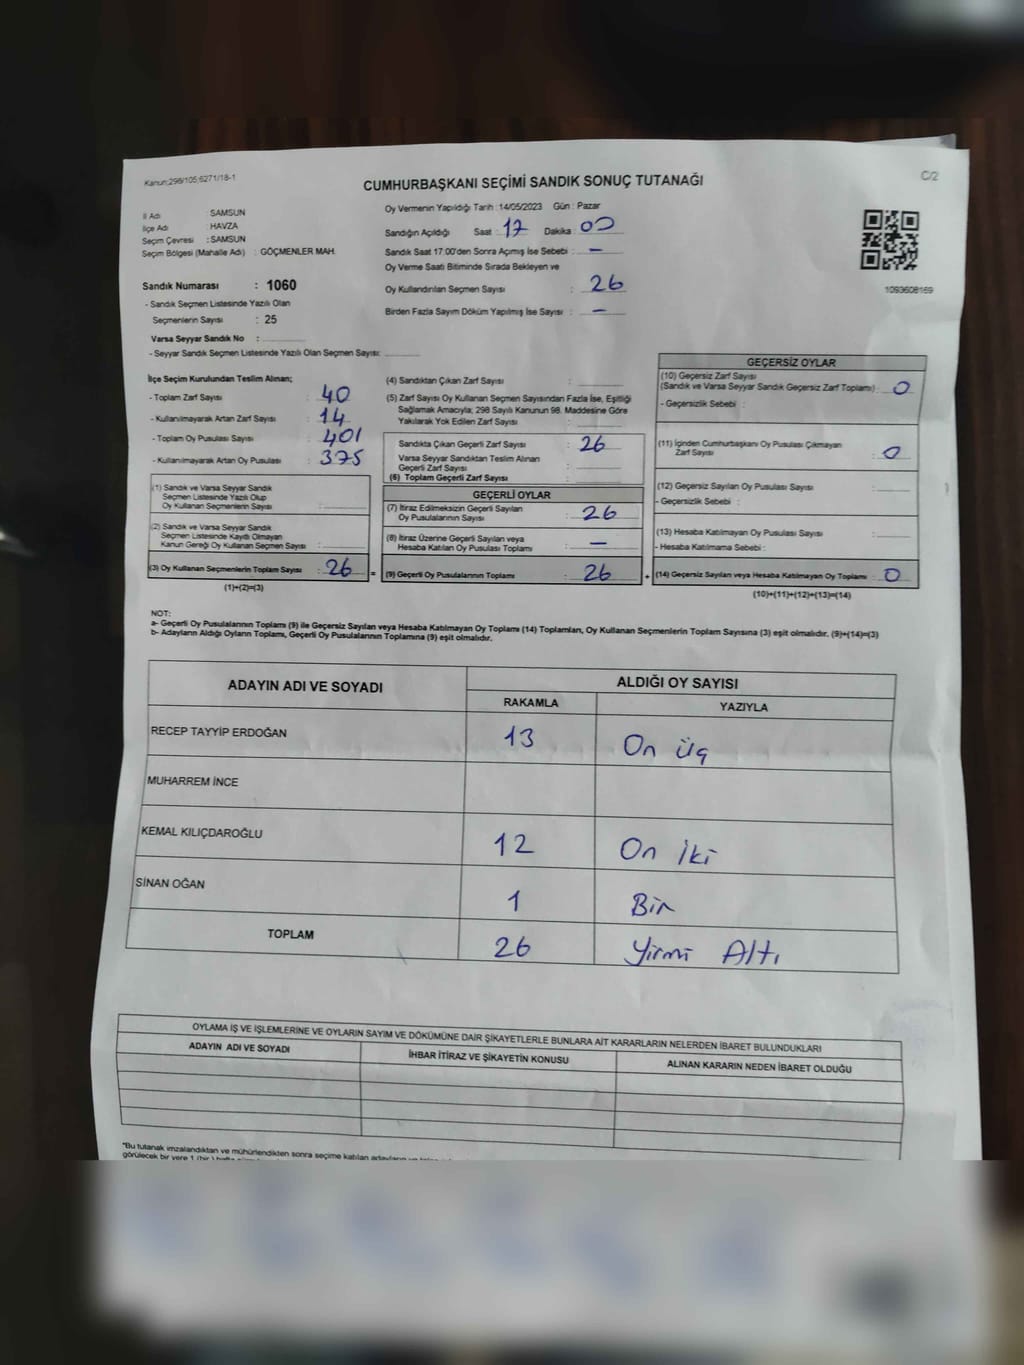 Kanun:298/105;6271/18-1
C/2
CUMHURBAŞKANI SEÇİMİ SANDIK SONUÇ TUTANAĞI
İl Adı SAMSUN
İlçe Adı HAVZA
Seçim Çevresi : SAMSUN
Seçim Bölgesi (Mahalle Adı) : GÖÇMENLER MAH.
Sandık Numarası : 1060
- Sandık Seçmen Listesinde Yazılı Olan
Seçmenlerin Sayısı : 25
Varsa Seyyar Sandık No :
- Seyyar Sandık Seçmen Listesinde Yazılı Olan Seçmen Sayısı:
Oy Vermenin Yapıldığı Tarih : 14/05/2023 Gün : Pazar
Sandığın Açıldığı Saat : 17 Dakika : 00
Sandık Saat 17:00'den Sonra Açımış İse Sebebi : -
Oy Verme Saati Bitiminde Sırada Bekleyen ve
Oy Kullandırılan Seçmen Sayısı : 26
Birden Fazla Sayım Döküm Yapılmış İse Sayısı : -
1093608169
İlçe Seçim Kurulundan Teslim Alınan;
- Toplam Zarf Sayısı : 40
- Kullanılmayarak Artan Zarf Sayısı : 14
- Toplam Oy Pusulası Sayısı : 401
- Kullanılmayarak Artan Oy Pusulası : 375
(1) Sandık ve Varsa Seyyar Sandık
Seçmen Listesinde Yazılı Olup
Oy Kullanan Seçmenlerin Sayısı :
(2) Sandık ve Varsa Seyyar Sandık
Seçmen Listesinde Kayıtlı Olmayan
Kanun Gereği Oy Kullanan Seçmen Sayısı :
(3) Oy Kullanan Seçmenlerin Toplam Sayısı : 26 =
(1)+(2)=(3)
(4) Sandıktan Çıkan Zarf Sayısı :
(5) Zarf Sayısı Oy Kullanan Seçmen Sayısından Fazla İse, Eşitliği
Sağlamak Amacıyla; 298 Sayılı Kanunun 98. Maddesine Göre
Yakılarak Yok Edilen Zarf Sayısı :
Sandıkta Çıkan Geçerli Zarf Sayısı : 26
Varsa Seyyar Sandıktan Teslim Alınan
Geçerli Zarf Sayısı :
(6) Toplam Geçerli Zarf Sayısı :
GEÇERLİ OYLAR
(7) İtiraz Edilmeksizin Geçerli Sayılan
Oy Pusulalarının Sayısı : 26
(8) İtiraz Üzerine Geçerli Sayılan veya
Hesaba Katılan Oy Pusulası Toplamı : -
(9) Geçerli Oy Pusulalarının Toplamı : 26 +
GEÇERSİZ OYLAR
(10) Geçersiz Zarf Sayısı
(Sandık ve Varsa Seyyar Sandık Geçersiz Zarf Toplamı) : 0
- Geçersizlik Sebebi :
(11) İçinden Cumhurbaşkanı Oy Pusulası Çıkmayan
Zarf Sayısı : 0
(12) Geçersiz Sayılan Oy Pusulası Sayısı :
- Geçersizlik Sebebi :
(13) Hesaba Katılmayan Oy Pusulası Sayısı :
- Hesaba Katılmama Sebebi :
(14) Geçersiz Sayılan veya Hesaba Katılmayan Oy Toplamı : 0
(10)+(11)+(12)+(13)=(14)
NOT:
a- Geçerli Oy Pusulalarının Toplamı (9) ile Geçersiz Sayılan veya Hesaba Katılmayan Oy Toplamı (14) Toplamları, Oy Kullanan Seçmenlerin Toplam Sayısına (3) eşit olmalıdır. (9)+(14)=(3)
b- Adayların Aldığı Oyların Toplamı, Geçerli Oy Pusulalarının Toplamına (9) eşit olmalıdır.
ADAYIN ADI VE SOYADI ALDIĞI OY SAYISI
RAKAMLA YAZIYLA
RECEP TAYYİP ERDOĞAN 13 On Üç
MUHARREM İNCE
KEMAL KILIÇDAROĞLU 12 On İki
SİNAN OĞAN 1 Bir
TOPLAM 26 Yirmi Altı
OYLAMA İŞ VE İŞLEMLERİNE VE OYLARIN SAYIM VE DÖKÜMÜNE DAİR ŞİKAYETLERLE BUNLARA AİT KARARLARIN NELERDEN İBARET BULUNDUKLARI
ADAYIN ADI VE SOYADI İHBAR İTİRAZ VE ŞİKAYETİN KONUSU ALINAN KARARIN NEDEN İBARET OLDUĞU
*Bu tutanak imzalandıktan ve mühürlendikten sonra seçime katılan adayların
görülecek bir yere 1 (bir) hafta